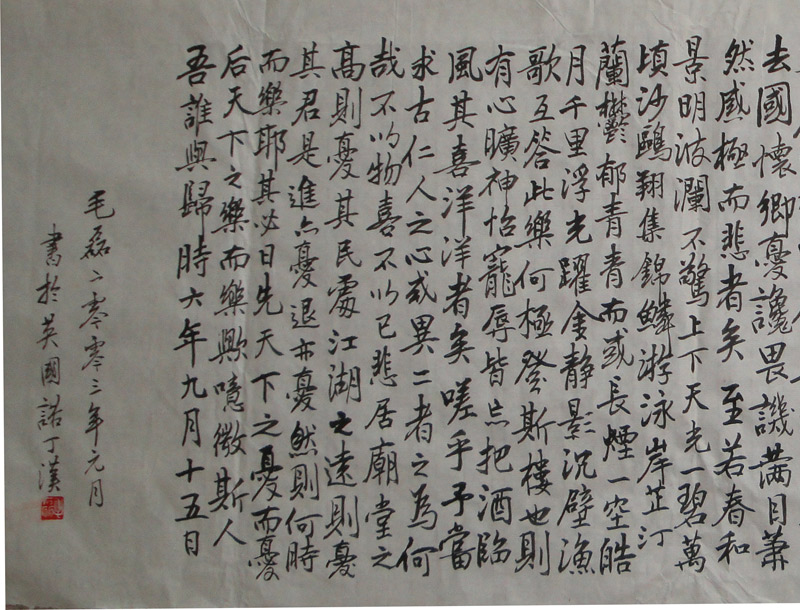 去國懷鄉憂讒畏譏滿目蕭
然感極而悲者矣至若春和
景明波瀾不驚上下天光一碧萬
頃沙鷗翔集錦鱗游泳岸芷汀
蘭鬱郁青青而或長煙一空皓
月千里浮光躍金静影沉壁漁
歌互答此樂何極登斯樓也則
有心曠神怡寵辱皆忘把酒臨
風其喜洋洋者矣嗟乎予當
求古仁人之心或異二者之為何
哉不以物喜不以己悲居廟堂之
高則憂其民處江湖之遠則憂
其君是進亦憂退亦憂然則何時
而樂耶其必曰先天下之憂而憂
后天下之樂而樂歟噫微斯人
吾誰與歸時六年九月十五日
毛磊二零零三年元月
書於英國諾丁漢